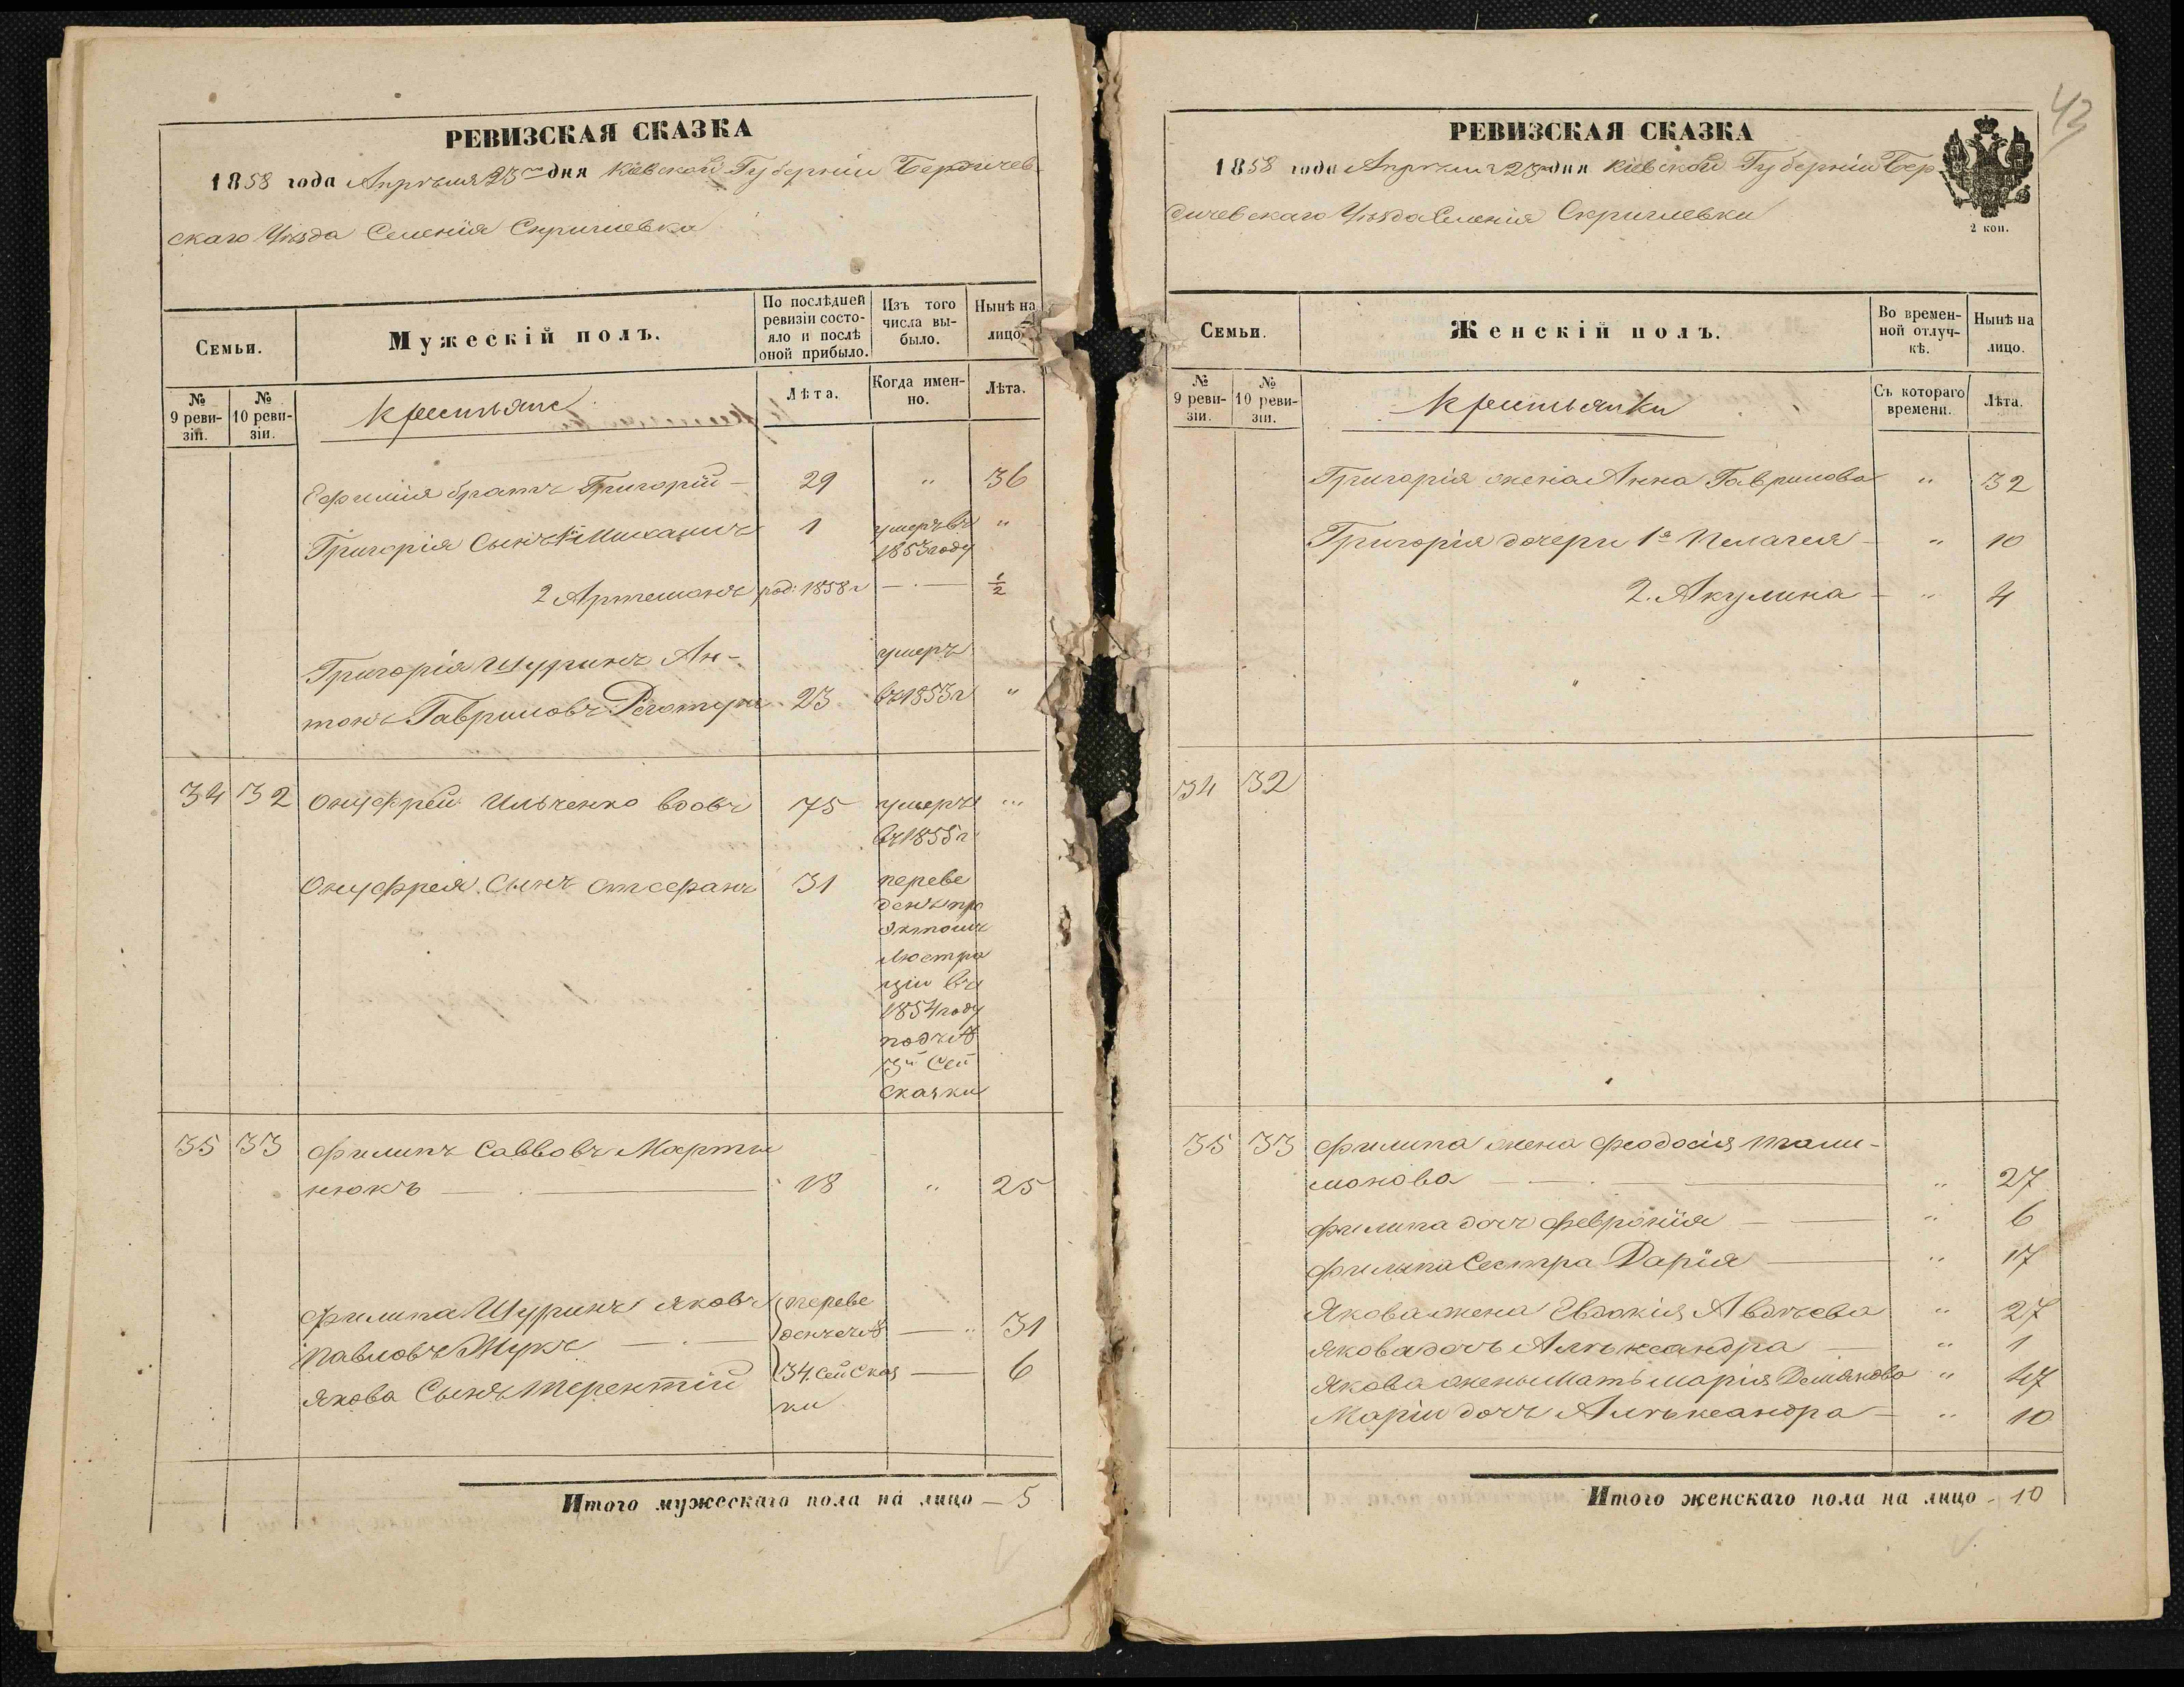 РЕВИЗСКАЯ СКАЗКА
1858 года Апрѣля 23го дня Кіевской Губерніи Бердичев-
скаго Уѣзда Селенія Скриглевка
Семьи.
Мужескій полъ.
По послѣдней ревизіи состо-
яло и послѣ оной прибыло.
Изъ того числа вы-
было.
Нынѣ на лицо.
№ 9 реви-
зіи.
№ 10 реви-
зіи.
Крестьяне
Лѣта.
Когда имен-
но.
Лѣта.
Ефимія братъ Григорій - 29 " 36
Григорія Сынъ 1й Михаилъ 1 умеръ въ "
1853 году
2 Артемонъ род: 1858 г — 1/2
Григорія Шуринъ Ан- умеръ
тонъ Гавриловъ 23 въ 1853 г "
34 32 Онуфрей Ильченко вдовъ 75 умеръ "
въ 1855 г
Онуфрея Сынъ 31 переве
денъ про
эктомъ
люстра
ціи въ
1854 году
подъ №
3й Сей
Сказки
35 33 Филипъ Савовъ Марти
нюкъ — 18 " 25
Филипа Шуринъ Яковъ переве
Павловъ Жукъ — денъ съ № — " 31
Якова Сынъ Терентій 34. Сей Сказ — 6
ки
Итого мужескаго пола на лицо — 5
43
РЕВИЗСКАЯ СКАЗКА
1858 года Апрѣля 23го дня Кіевской Губерніи Бер
дичевскаго Уѣзда Селенія Скриглевки
2 коп.
Семьи.
Женскій полъ.
Во времен-
ной отлуч-
кѣ.
Нынѣ на лицо.
№ 9 реви-
зіи.
№ 10 реви-
зіи.
Крестьянки
Съ котораго времени.
Лѣта.
Григорія жена Анна Гаврилова " 32
Григорія дочери 1я Пелагея - " 10
2. Акулина - " 4
34 32
35 33 Филипа жена Феодосія
монова — " 27
Филипа дочь Февронія — " 6
Филипа Сестра Дарія — " 17
Якова жена Евдокія Авдѣева " 27
Якова дочь Алѣксандра — " 1
Якова жены Мать Марія Демянова " 47
Маріи дочь Алѣксандра - " 10
Итого женскаго пола на лицо - 10